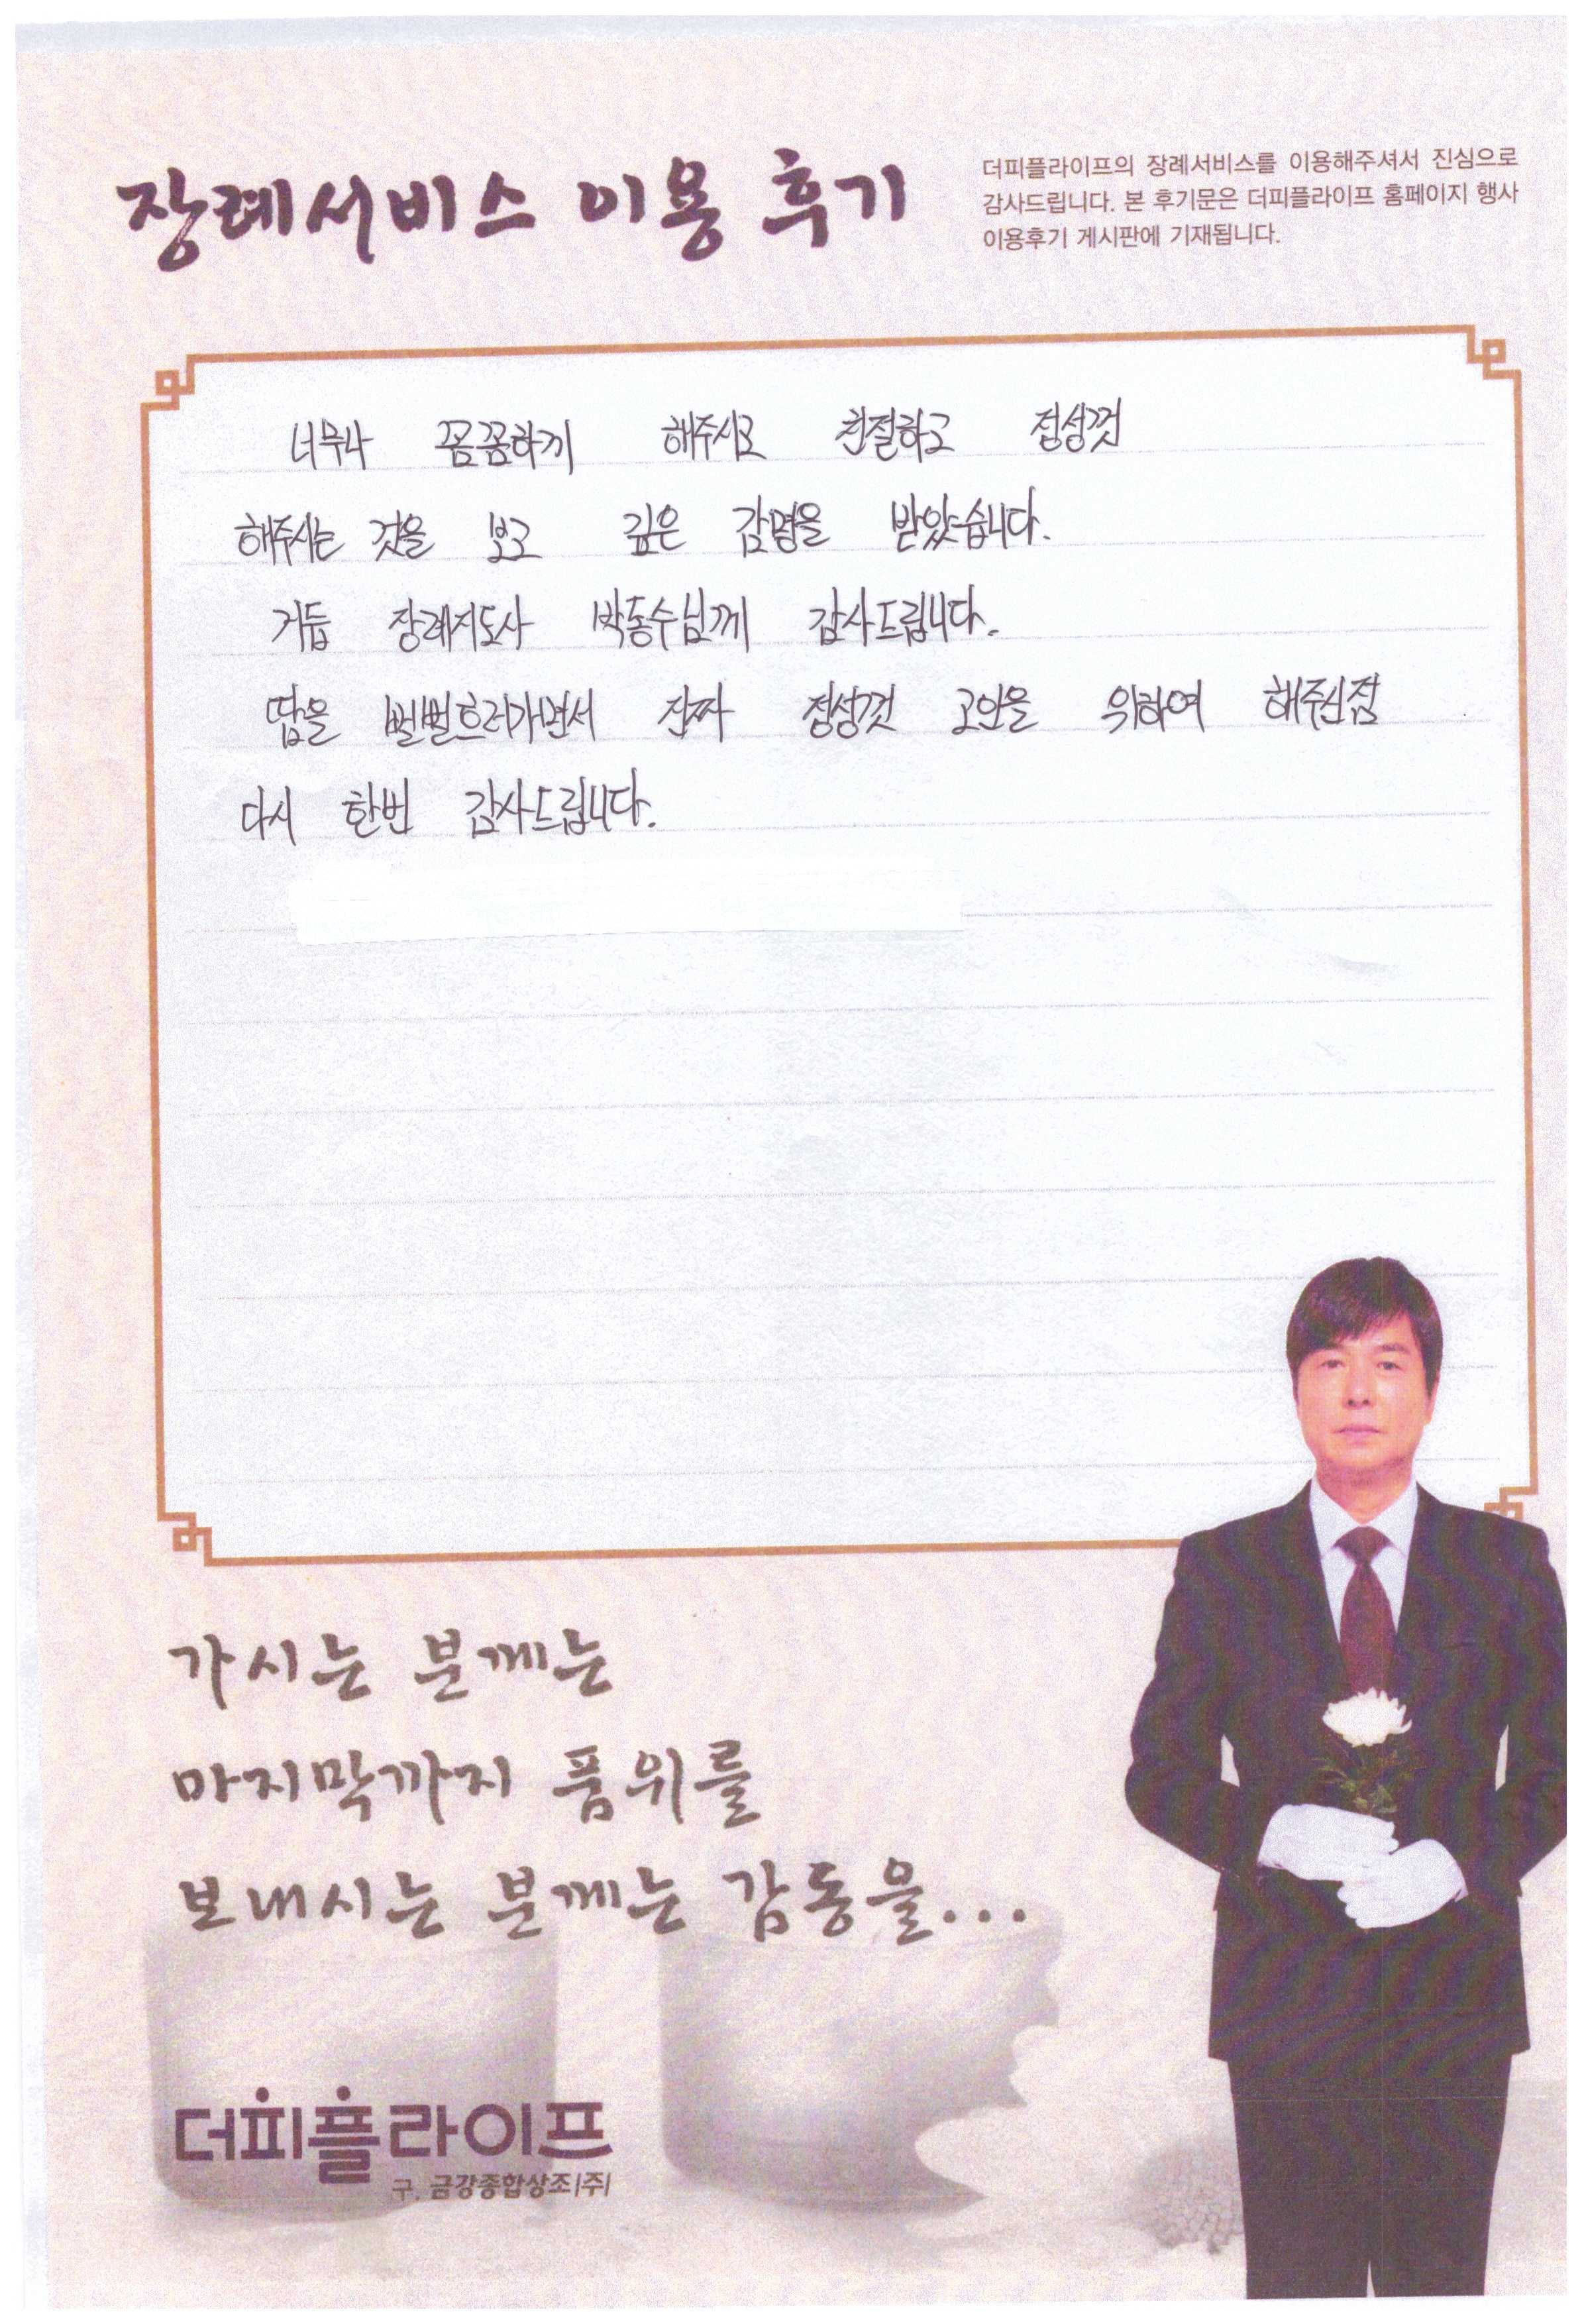 장례서비스 이용 후기
더피플라이프의 장례서비스를 이용해주셔서 진심으로
감사드립니다. 본 후기문은 더피플라이프 홈페이지 행사
이용후기 게시판에 기재됩니다.
너무나 꼼꼼하게 해주시고 친절하고 정성껏
해주시는 것을 보고 깊은 감명을 받았습니다.
거듭 장례지도사 박동수님께 감사드립니다.
땀을 뻘뻘흐려가면서 진짜 정성껏 고인을 위하여 해주신점
다시 한번 감사드립니다.
가시는 분께는
마지막까지 품위를
보내시는 분께는 감동을...
더피플라이프
구. 금강종합상조(주)